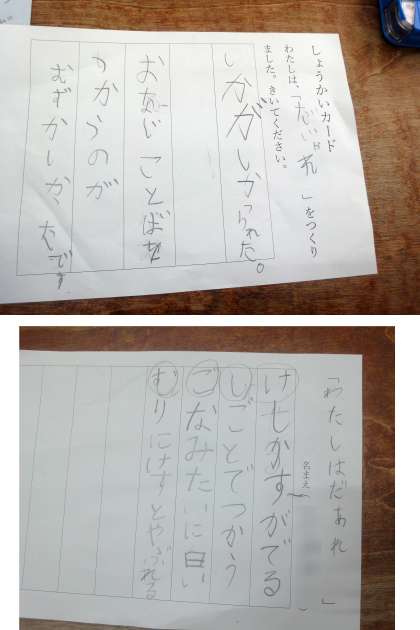 しょうかいカード
わたしは、「だあれ」をつくり
ました。きいてください。
いかがしかつられた。
おなじ ことばを
つかうのが
むずかしかったです。
「わたしはだあれ」
名まえ
けしかすがでる
しごとでつかう
ごなみたいに白い
むりにけすとやぶれる